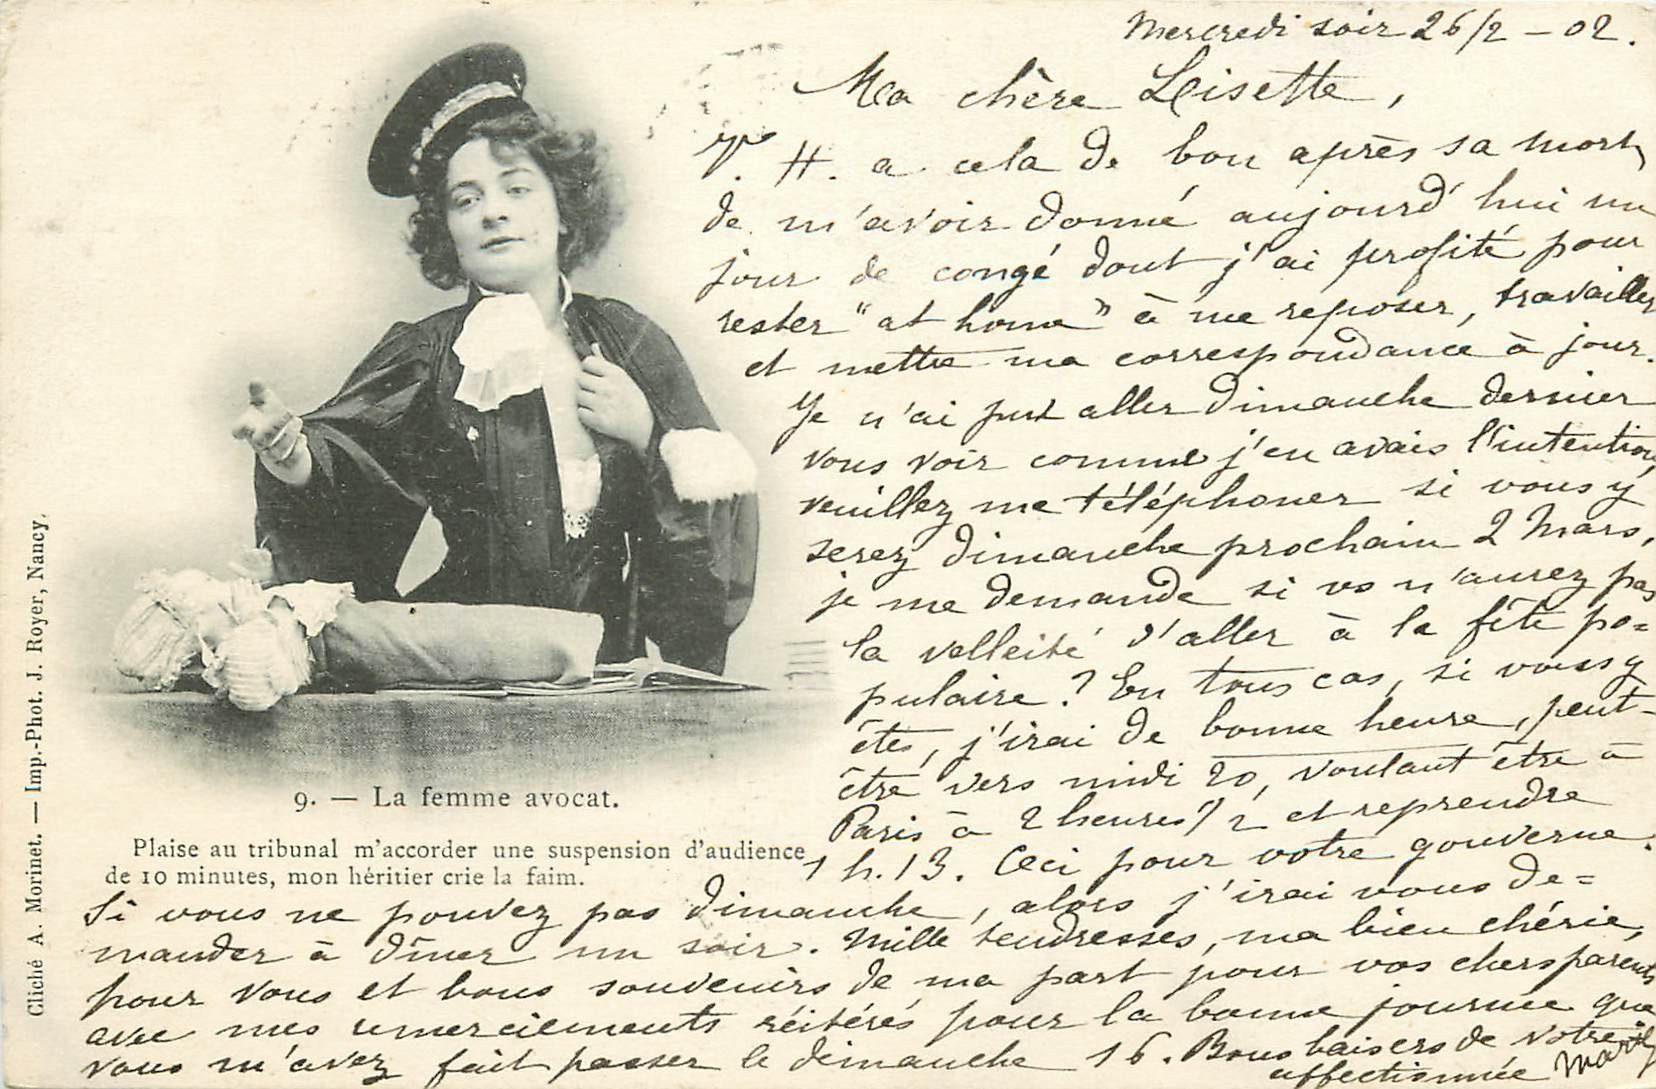 Mercredi soir 26/2 - 02.
Ma chère Lisette,
V. H. a cela de bon après sa mort,
de m'avoir donné aujourd'hui un
jour de congé dont j'ai profité pour
rester "at home" à me reposer, travailler
et mettre ma correspondance à jour.
Je n'ai pu aller dimanche dernier
vous voir comme j'en avais l'intention,
veuillez me téléphoner si vous y
serez dimanche prochain 2 Mars,
je me demande si vs n'aurez pas
la velleité d'aller à la fête po=
pulaire? En tous cas, si vous y
êtes, j'irai de bonne heure, peut-
être vers midi 20, voulant être à
Paris à 2 heures 1/2 et reprendre
1 h. 13. Ceci pour votre gouverne.
Si vous ne pouvez pas dimanche, alors j'irai vous de=
mander à dîner un soir. Mille tendresses, ma bien chérie,
pour vous et bons souvenirs de ma part pour vos chers parents
avec mes remerciements réitérés pour la bonne journée que
vous m'avez fait passer le dimanche 16. Bons baisers de votre
affectionnée
9. — La femme avocat.
Plaise au tribunal m'accorder une suspension d'audience
de 10 minutes, mon héritier crie la faim.
Cliché A. Morinet. — Imp.-Phot. J. Royer, Nancy.